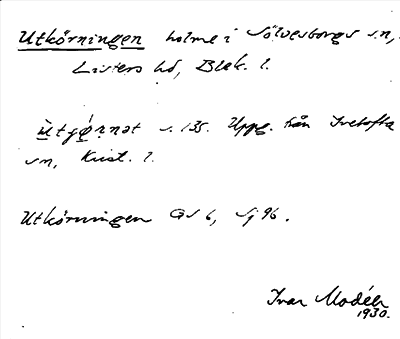 Utkörningen holme i Sölvesborgs sn,
Listers hd, Blek. l.
ùtgǿrnət s. 135. Uppg. från Ivetofta
sn, Krist. l.
Utkörningen GS 6, Sj 96.
Ivar Modéer
1930.